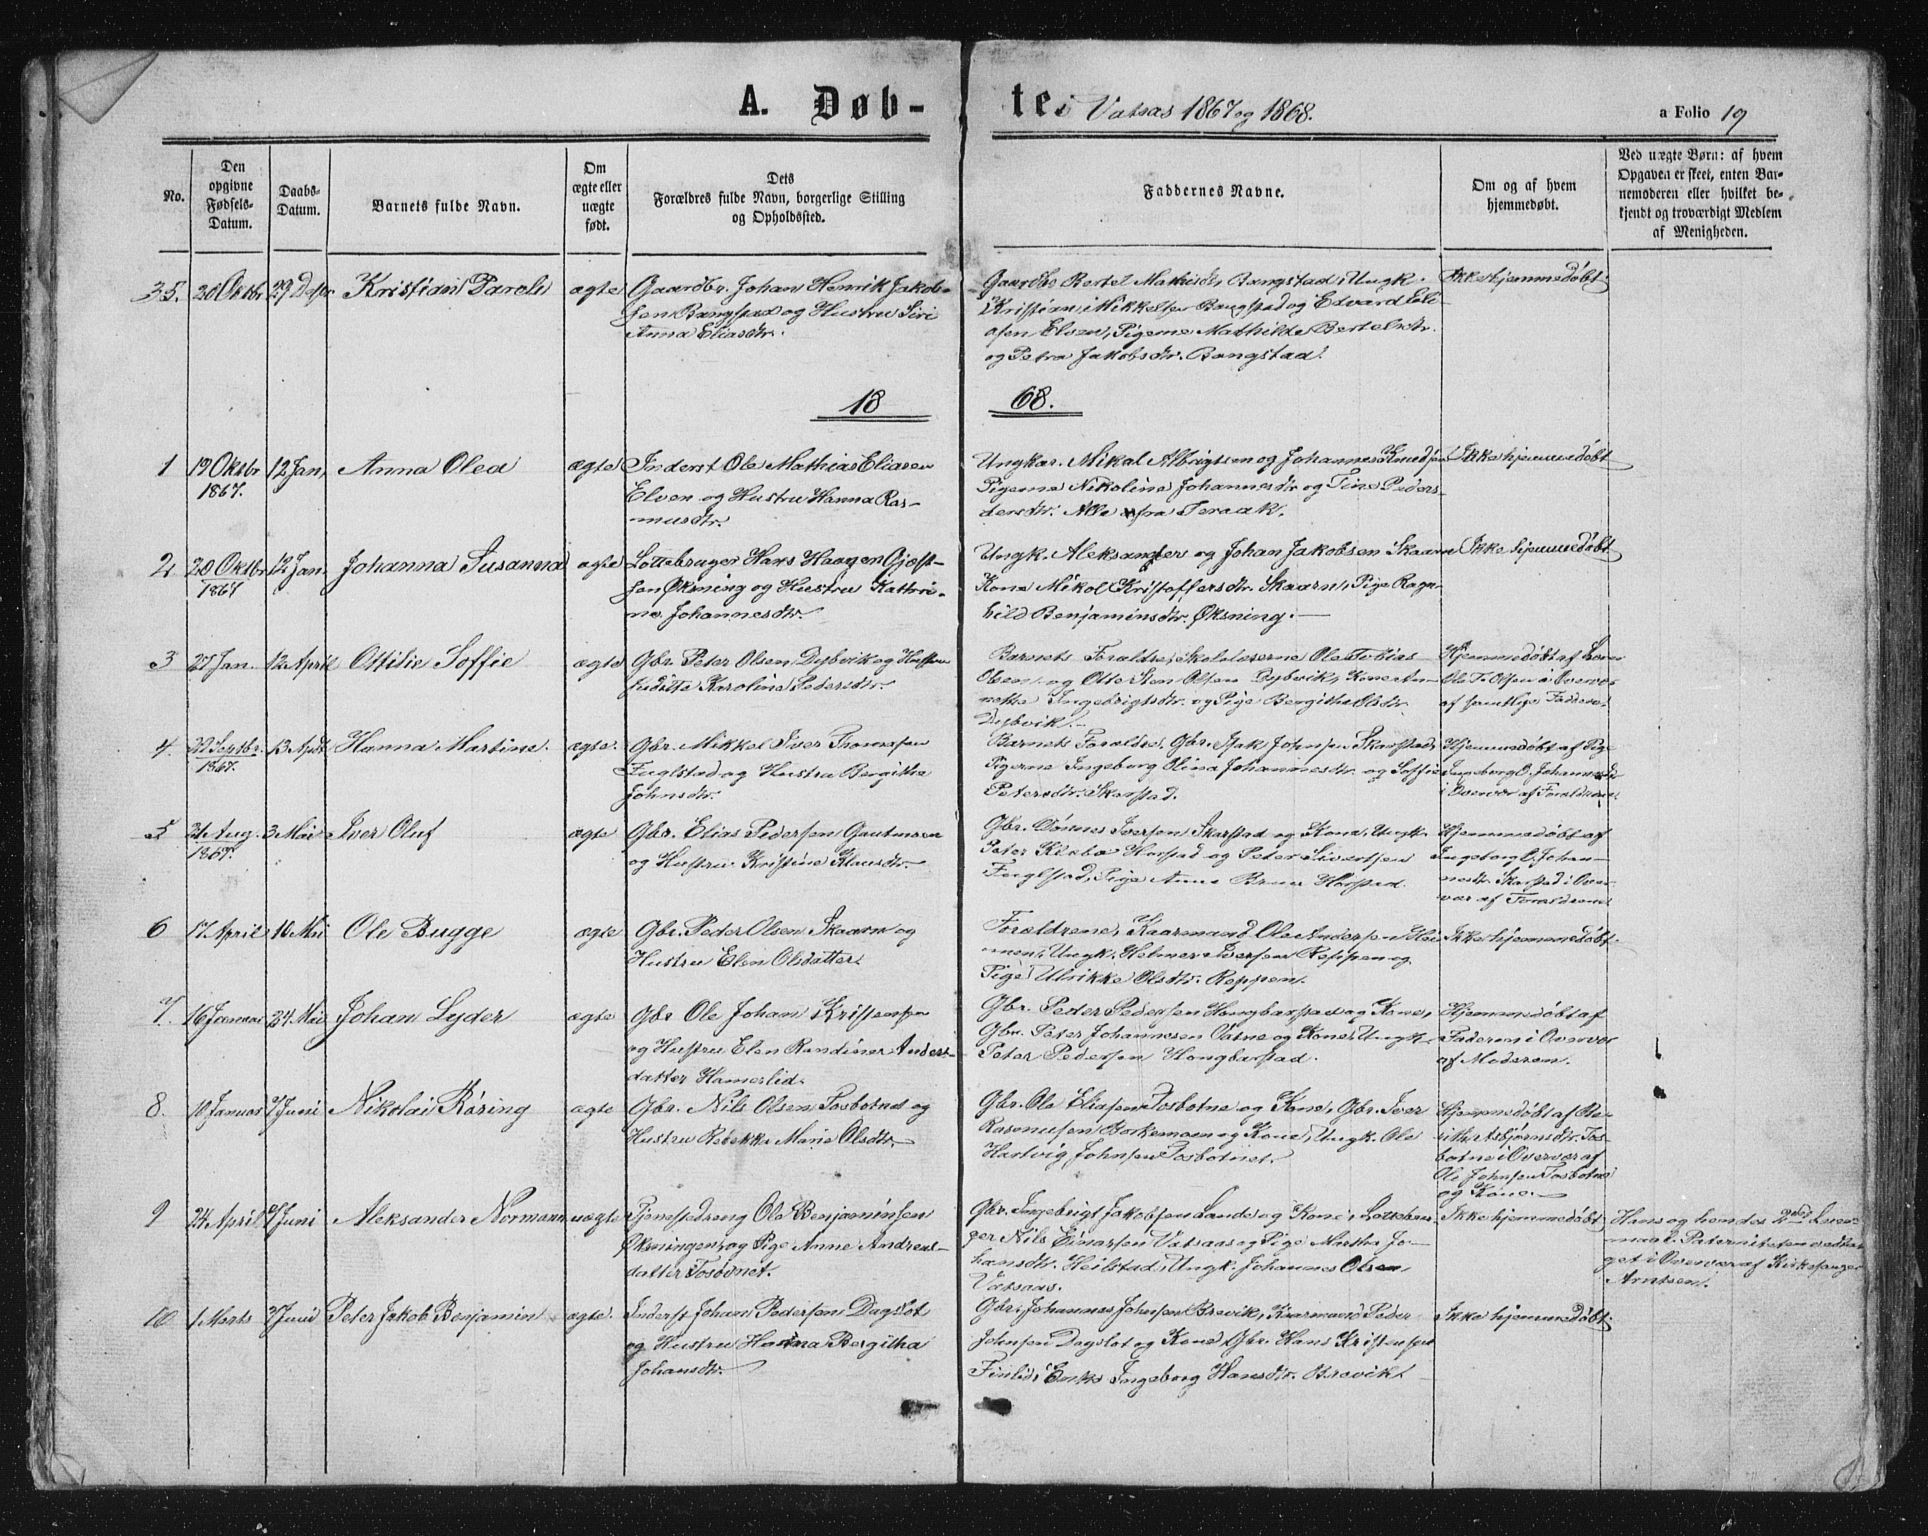 A. Døb-
te i Vatsas 1867 og 1868.
a Folio 19
No.
Den opgivne Fødsels-Datum.
Daabs-Datum.
Barnets fulde Navn.
Om ægte eller uægte født.
Dets Forældres fulde Navn, borgerlige Stilling og Opholdssted.
Faddernes Navne.
Om og af hvem hjemmedøbt.
Ved uægte Børn: af hvem
Opgaven er skeet, enten Bar-
nemoderen eller hvilket be-
kjendt og troværdigt Medlem
af Menigheden.
35. 20 Oktbr 29 Desbr Kristian Pareli ægte
Gaardbr. Johan Henrik Jakob-
sen Bangstad og Hustru Siri
Anna Eliasdtr.
Gaardbr Bertel Mathisdr. Bangstad, Ungk.
Kristian Mikkelsen Bangstad og Edvard Eli-
asen Elven, Pigerne Mathilde Bertelsdtr.
og Petra Jakobsdtr. Bangstad.
Ikke hjemmedøbt
18 68.
1 19 Oktbr 1867. 12 Jan. Anna Olea ægte
Inderst Ole Mathias Eliasen
Elven og Hustru Hanna Ras-
musdtr.
Ungkar. Mikal Albrigtsen og Johannes Knudsen
Pigerne Nikoline Johannesdtr og Tine Peders-
dersdtr. Alle fra Teraak.
Ikke hjemmedøbt
2 20 Oktbr 1867 12 Jan. Johanna Susanna ægte
Lottebruger Hans Haagen Gjøls-
sen Øksning og Hustru Kathri-
ne Johannesdtr.
Ungk. Aleksander og Johan Jakobsen Skaarn
Kone Mikol Kristoffersdtr. Skaarn, Pige Ragn-
hild Benjaminsdtr. Øksning.
Ikke hjemmedøbt
3 27 Jan. 12 April Ottilie Soffie ægte
Gbr. Peter Olsen Dybvik og Hustru
Juditte Karoline Pedersdtr.
Barnets Forældre, Skolelærerne Ole Tobias
Olsen og Otter Sten Olsen Dybvik, Kone An-
nethe Ingebrigtsdtr. og Pige Bergitha Olsdtr.
Dybvik.
Hjemmedøbt af
Ole T. Olsen i Overvær
af samtlige Faddere.
4. 22 Septbr. 1867. 13 April Hanna Martine. ægte.
Gbr. Mikkel Iver
Fuglstad og Hustru Bergitha
Johnsdtr.
Barnets Forældre, Gbr. Isak Johnsen Skarstad,
Pigerne Ingeborg Olina Johannesdtr. og Soffie
Petersdtr. Skarstad.
Hjemmedøbt af Pige
Ingeborg O. Johannesdtr
i Overvær af Forældrene.
5 21 Aug. 1867. 3 Mai Iver Oluf ægte
Gbr. Elias Pedersen
og Hustru Kristine Klausdtr.
Gbr. Tønnes Iversen Skarstad og Kone, Ungk.
Peter Klæbo Horstad og Peter Sivertsen
Fuglstad, Pige Anne Bruun Horstad.
Hjemmedøbt af
Ingeborg O. Johan-
nesdtr. Skarstad i Over-
vær af Forældrene
6 17 April 10 Mai Ole Bugge ægte
Gbr. Peder Olsen Skaarn og
Hustru Elen Olsdatter.
Forældrene, Kaarmand Ole Andersen Hei-
men, Ungk. Helmer Iversen Reppen og
Pige Ulrikke Olsdtr. Reppen.
Ikke hjemmedøbt.
7. 16 Januar 24 Mai Johan Lyder ægte
Gbr Ole Johan Kristensen
og Hustru Elen Randiner Anders-
datter Hamerlid.
Gbr. Peder Pedersen Hongbarstad og Kone,
Gbr. Peter Johannesen Vatne og Kone, Ungk.
Peter Pedersen Hongbarstad.
Hjemmedøbt af
Faderen i Overvær
af Moderen.
8. 10 Januar 7 Juni Nikolai Röring ægte
Gbr. Nils Olsen Tosbotnet og
Hustru Rebekka Marie Olsdtr.
Gbr. Ole Eliasen Tosbotne og Kone, Gbr. Iver
Rasmusen Borkemoen og Kone, Ungk. Ole
Hartvig Johnsen Tosbotnet.
Hjemmedøbt af Be-
rith Asbjørnsdtr. Tos-
botne i Overvær af
Ole Johnsen Tosbotne
og Kone.
9 24 April 7 Juni Aleksander Normann uægte
Tjenestedreng Ole Benjaminsen
Øksningen, og Pige Anne Andreas-
datter Tosbotnet.
Gbr. Ingebrigt Jakobsen Lande og Kone, Lottebru-
ger Nils Einarsen Vatsaas og Pige Martha Jo-
hansdtr. Heilstad, Ungk. Johannes Olsen
Vatsaas.
Ikke hjemmedøbt
Hans og hendes 2det Leier-
maal. Paterniteten vedta-
get i Overvær af Kirkesanger
Arntsen.
10 1 Marts 7 Juni Peter Jakob Benjamin ægte.
Inderst Johan Pedersen Dagslot
og Hustru Hanna Bergitha
Johansdtr.
Gbr. Johannes Johnsen Brevik, Kaarmand Peder
Johnsen Dagslot og Kone, Gbr. Hans Kristensen
Finlid, Enke Ingeborg Hansdtr. Brevik
Ikke hjemmedøbt.